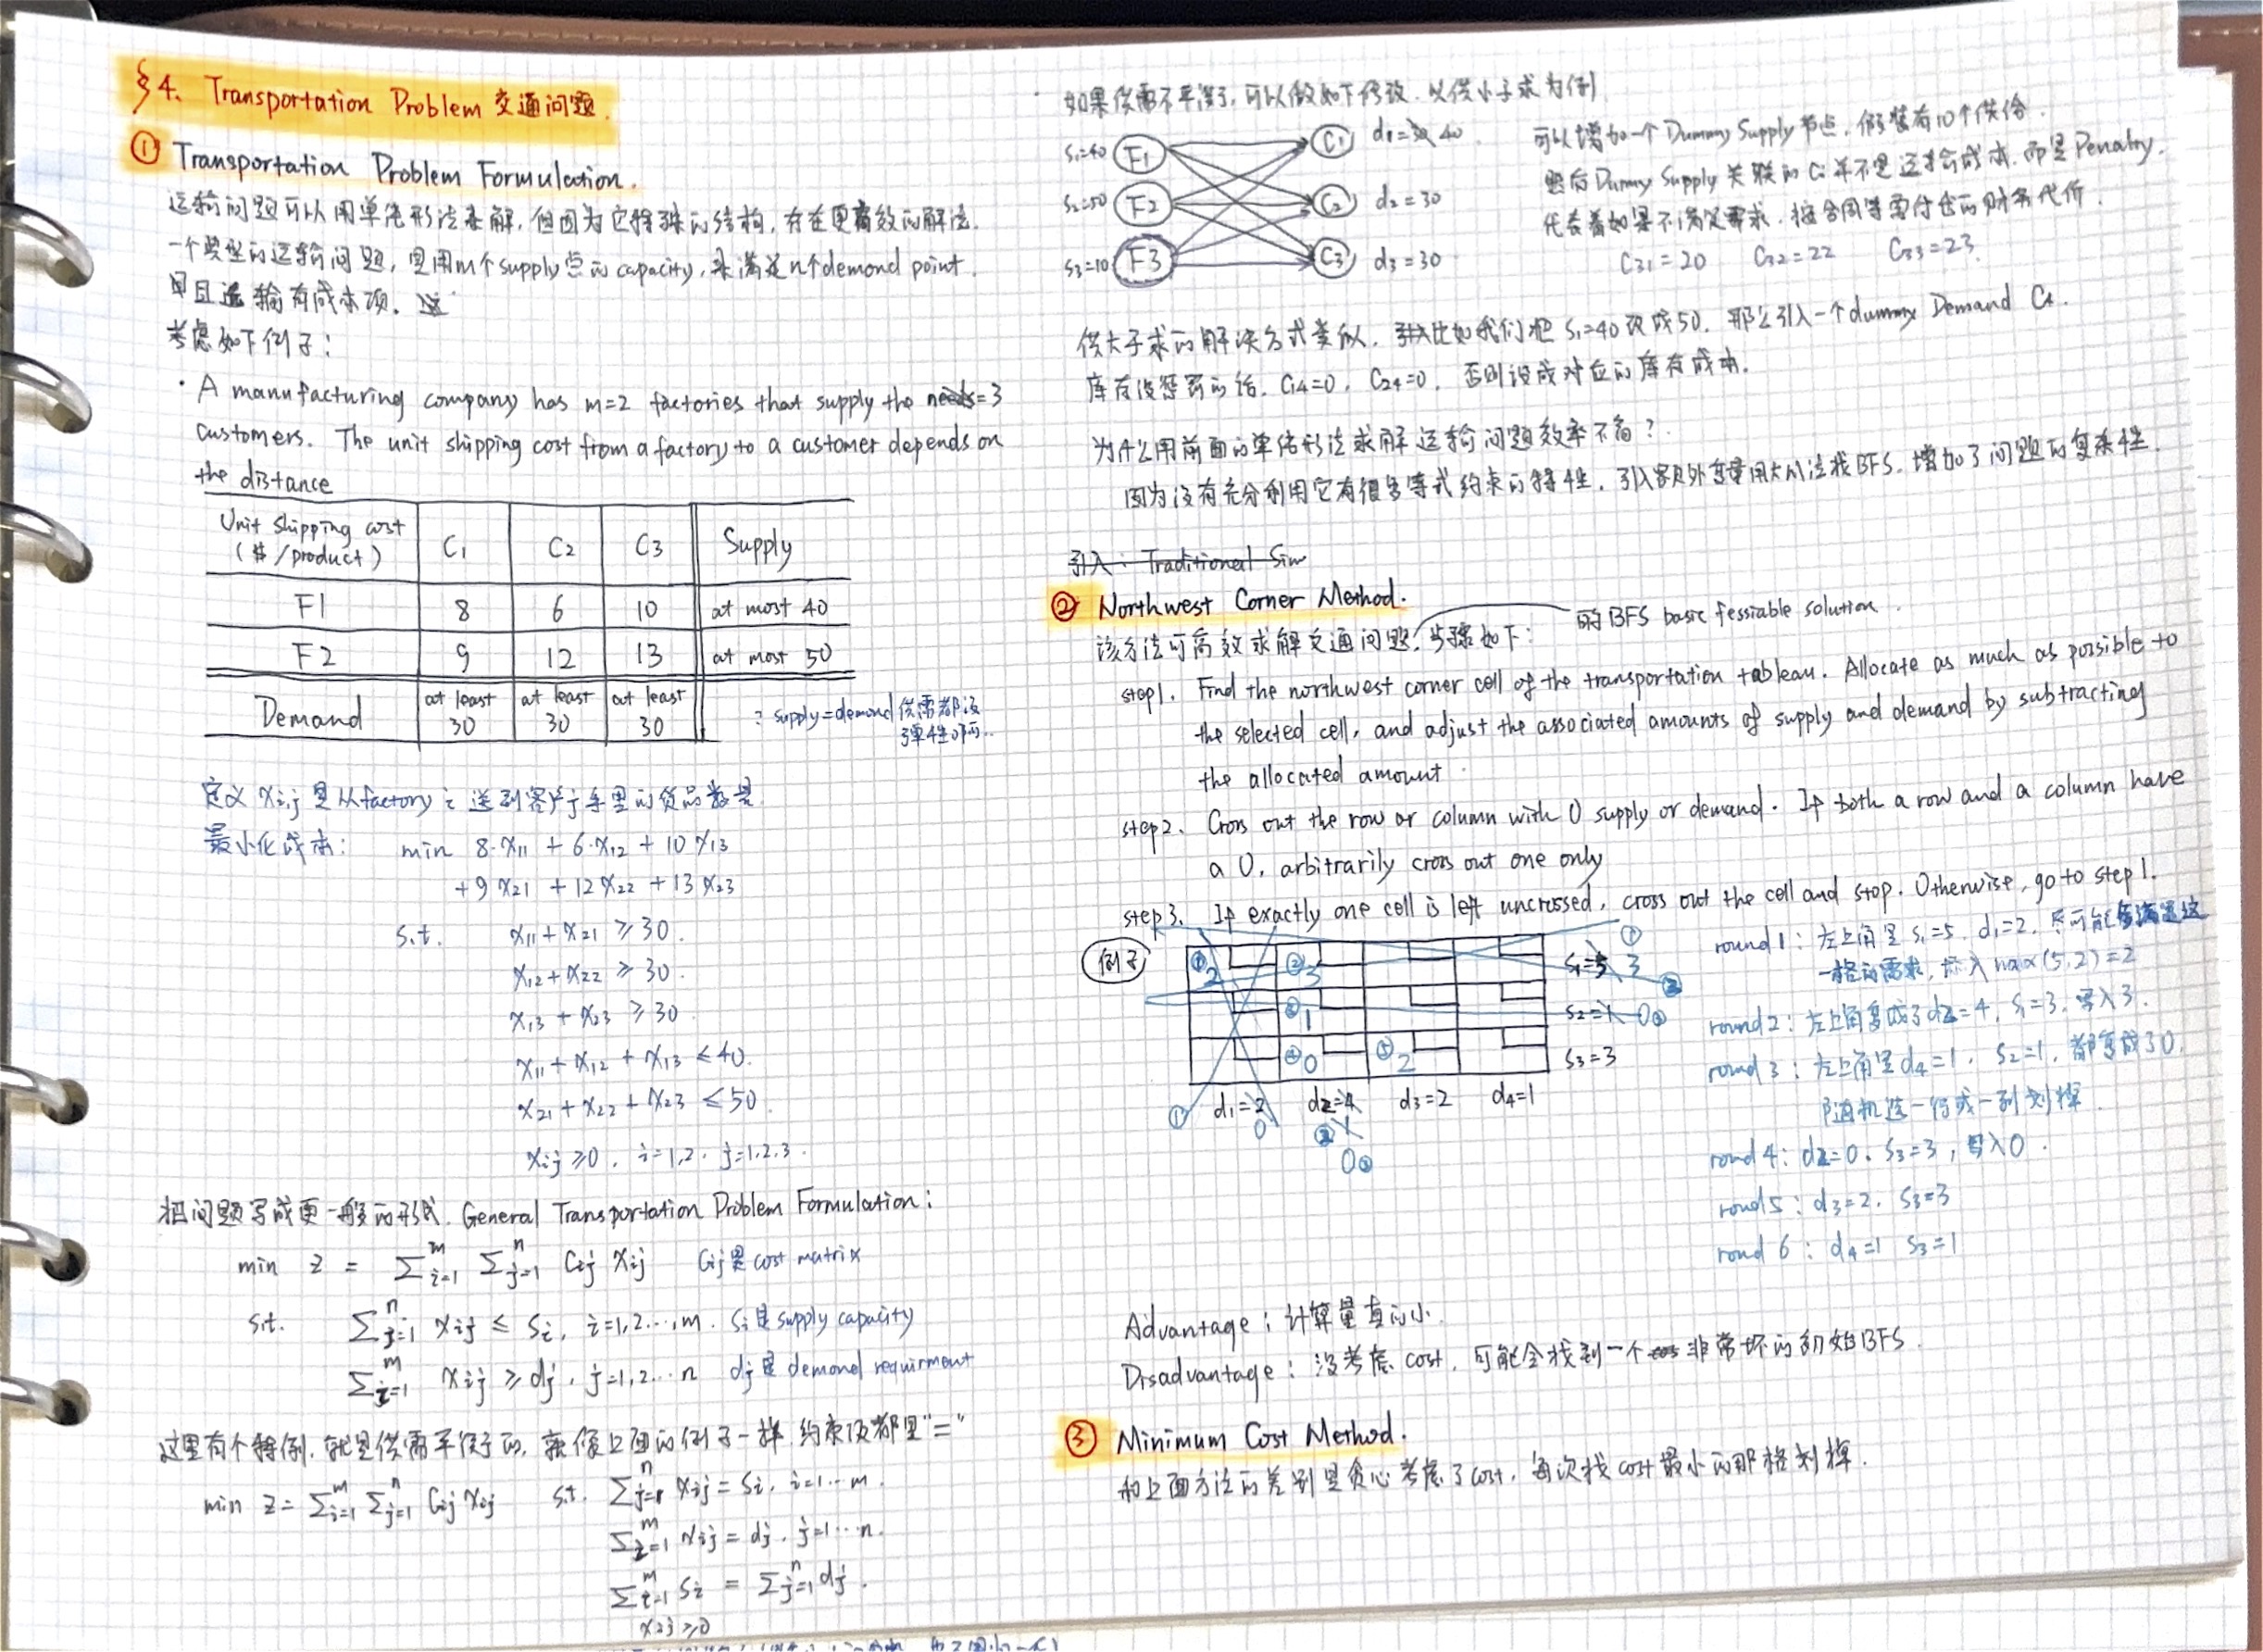 §4. Transportation Problem 交通问题.
① Transportation Problem Formulation.
运输问题可以用单纯形法来解, 但因为它特殊的结构, 存在更高效的解法.
一个典型的运输问题, 是用m个supply点的capacity, 来满足n个demond point.
并且运输有成本项.
考虑如下例子:
· A manufacturing company has m=2 factories that supply the =3
customers. The unit shipping cost from a factory to a customer depends on
the distance
Unit shipping cost ($/product) C1 C2 C3 Supply
F1 8 6 10 at most 40
F2 9 12 13 at most 50
Demand at least 30 at least 30 at least 30
? supply=demond 供需都没
弹性啊..
定义 xi,j 是从factory i 送到客户j手里的货品数量
最小化成本: min 8·x11 + 6·x12 + 10 x13
+ 9 x21 + 12 x22 + 13 x23
s.t. x11 + x21 ≥ 30.
x12 + x22 ≥ 30.
x13 + x23 ≥ 30
x11 + x12 + x13 ≤ 40.
x21 + x22 + x23 ≤ 50.
xij ≥ 0, i=1,2. j=1,2,3.
把问题写成更一般的形式. General Transportation Problem Formulation:
min z = Σ_{i=1}^{m} Σ_{j=1}^{n} Cij xij Cij是cost matrix
s.t. Σ_{j=1}^{n} xij ≤ si, i=1,2...,m. si是supply capacity
Σ_{i=1}^{m} xij ≥ dj, j=1,2...n dj是 demand requirment
这里有个特例. 就是供需平衡的, 就像上面的例子一样 约束项都是"="
min z = Σ_{i=1}^{m} Σ_{j=1}^{n} Cij xij s.t. Σ_{j=1}^{n} xij = si, i=1...m.
Σ_{i=1}^{m} xij = dj, j=1...n.
Σ_{i=1}^{m} si = Σ_{j=1}^{n} dj.
xij ≥ 0
如果供需不平衡了, 可以做如下修改. 以供小于求为例
s1=40 F1 C1 d1= 40
s2=50 F2 C2 d2=30
s3=10 F3 C3 d3=30
可以增加一个Dummy Supply节点, 假装有10个供给.
然后Dummy Supply关联的Ci并不是运输成本, 而是Penalty.
代表着如果不满足需求, 按合同等需付出的财务代价.
C31=20 C32=22 C33=23.
供大于求的解决方式类似. 比如我们把 s1=40改成50. 那么引入一个dummy Demand C4.
库存没惩罚的话. C14=0, C24=0, 否则设成对应的库存成本.
为什么用前面的单纯形法求解运输问题效率不高?
因为没有充分利用它有很多等式约束的特性, 引入额外变量用大M法找BFS, 增加了问题的复杂性.
引入: Traditional Sim
② Northwest Corner Method.
的BFS basic fessiable solution.
该方法可高效求解交通问题, 步骤如下:
step1. Find the northwest corner cell of the transportation tableau. Allocate as much as possible to
the selected cell, and adjust the associated amounts of supply and demand by subtracting
the allocated amount.
step2. Cross out the row or column with 0 supply or demand. If both a row and a column have
a 0, arbitrarily cross out one only
step3. If exactly one cell is left uncrossed, cross out the cell and stop. Otherwise, go to step1.
例子
① 2 ② 3 s1=5 3 ① ②
③ 1 s2=1 0 ③
④ 0 ⑤ 2 s3=3
d1=2 d2=4 d3=2 d4=1
① 0 ② 1
0 ③
round1: 左上角是 s1=5, d1=2, 尽可能满足这
一格的需求, 标入 max(5,2)=2
round2: 左上角变成了d2=4, s1=3, 写入3.
round3: 左上角是d4=1, s2=1, 都变成了0.
随机选一行或一列划掉.
round4: d2=0, s3=3, 写入0.
round5: d3=2, s3=3
round6: d4=1 s3=1
Advantage: 计算量真的小.
Disadvantage: 没考虑cost, 可能会找到一个非常坏的初始BFS.
③ Minimum Cost Method.
和上面方法的差别是贪心考虑了cost, 每次找cost最小的那格划掉.